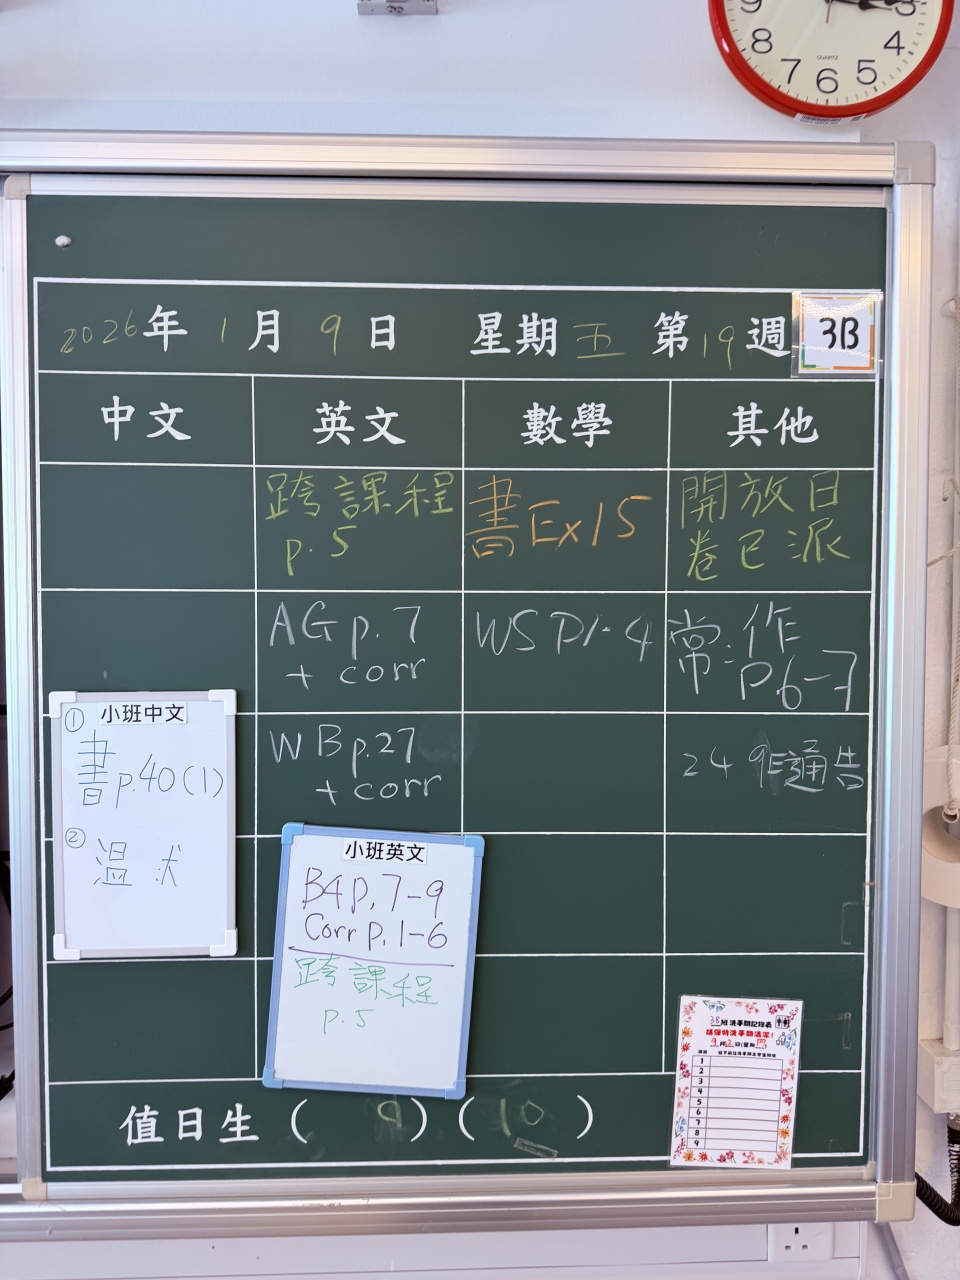 9 3
8 4
7 6 5
QUARTZ
2026年 1月 9日 星期五 第19週
3B
中文 英文 數學 其他
跨課程
p.5
書Ex15
開放日
卷已派
AG p.7
+ corr
WS P1-4
常:作
P6-7
WB p.27
+ corr
249E通告
小班中文
① 書p.40(1)
② 溫
小班英文
B4 p.7-9
Corr p.1-6
跨課程
p.5
3B班洗手間記錄表
請保持洗手間清潔!
1
2
3
4
5
6
7
8
9
值日生( 9 )( 10 )